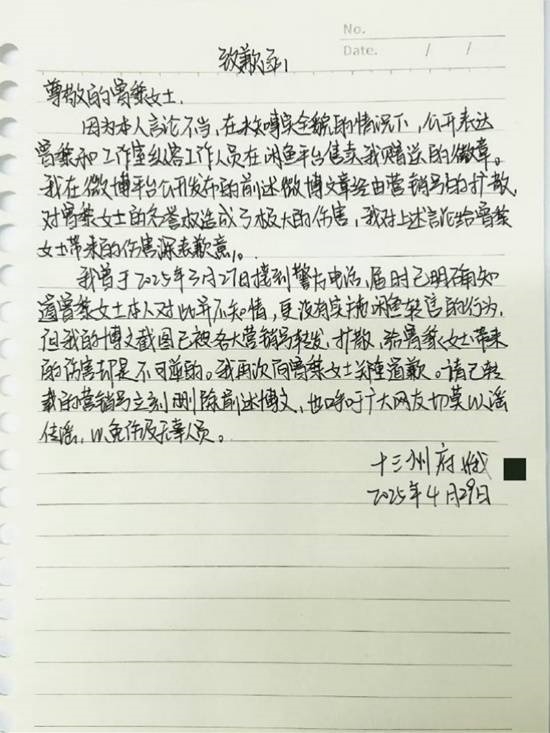 No.
Date. / /
致歉函
尊敬的曾黎女士.
因为本人言论不当,在未窥得全貌的情况下,公开表达
曾黎和工作室纵容工作人员在闲鱼平台售卖我赠送的徽章。
我在微博平台公开发布的前述微博文章经由营销号的扩散,
对曾黎女士的名誉权造成了极大的伤害,我对上述言论给曾黎
女士带来的伤害深表歉意。
我曾于2025年3月27日接到警方电话,届时已明确知
道曾黎女士本人对此并不知情,更没有实施闲鱼转售的行为,
但我的博文截图已被各大营销号转发、扩散,给曾黎女士带来
的伤害却是不可逆的。我再次向曾黎女士郑重道歉。请已转
载的营销号立刻删除前述博文,也呼吁广大网友切莫以谣
传谣,以免伤及无辜人员。
十三州府
2025年4月29日